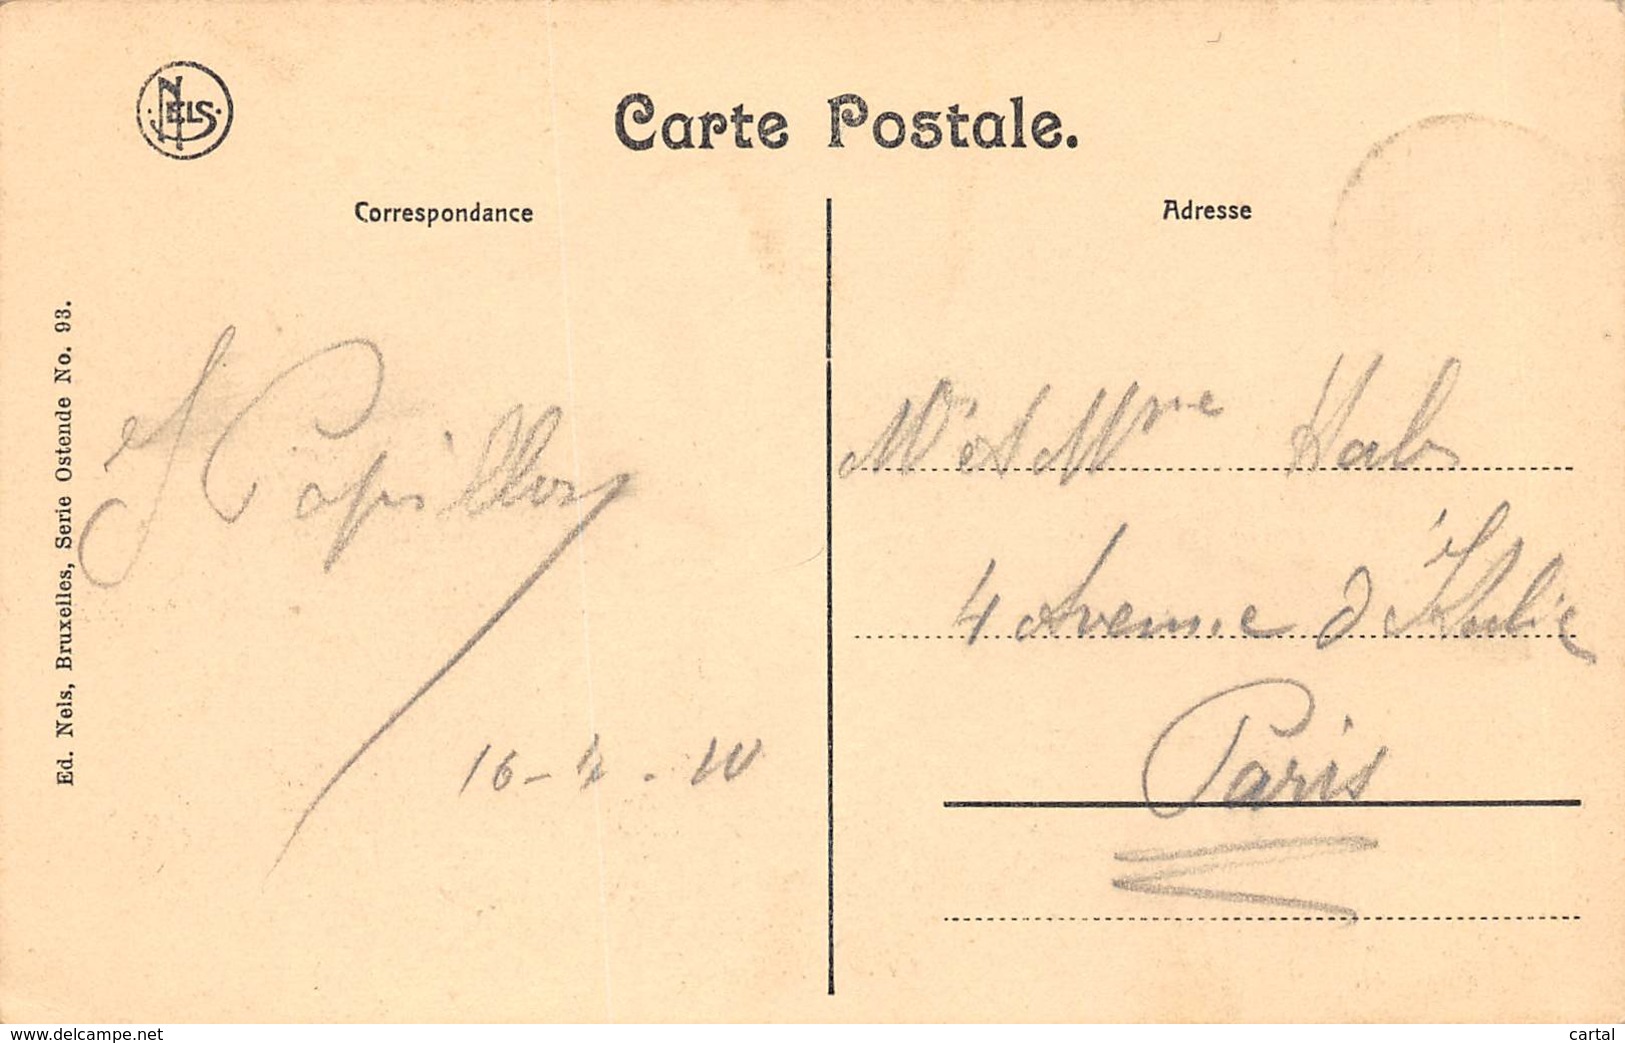 NELS
Carte Postale.
Correspondance
Adresse
Ed. Nels, Bruxelles, Serie Ostende No. 93.
Papillon
16-4.10
Mr et Mme
4 Avenue d'Italie
Paris
www.delcampe.net
cartal